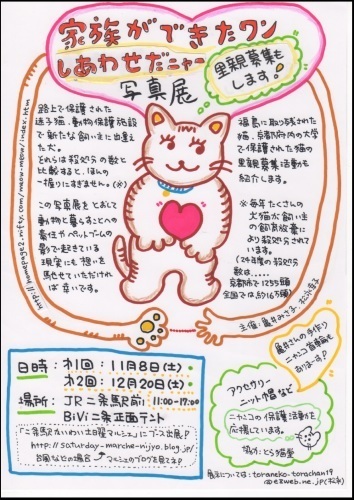 家族ができたワン
しあわせだニャー
写真展
里親募集も
します!
路上で保護された
迷子猫、動物保護施設
で新たな飼い主に出逢え
た犬。
それらは殺処分の数と
比較すると、ほんの
一握りにすぎません。(※)
この写真展をとおして
動物と暮らすことへの
責任やペットブームの
影で起きている
現実にも想いを
馳せていただければ
幸いです。
福島に取り残された
猫、京都府内の大学
で保護された猫の
里親募集活動も
紹介します。
※毎年たくさんの
犬猫が飼い主
の飼育放棄に
より殺処分されて
います。
(24年度の殺処分
数は……
京都市で1255頭
全国では約16万頭)
http://homepage2.nifty.com/meow-meow/index.htm
日時:
第1回 11月8日(土)
第2回 12月20日(土)
場所:
JR二条駅前 11:00-17:00
BiVi二条正面テント
「二条駅かいわい土曜マルシェ」にブース出展!
http://saturday-marche-nijyo.blog.jp/
台風などの場合 マルシェのブログを見てネ!
亀井さんの手作り
ニャンコ首輪も
ありまーす!
アクセサリー、
ニット帽など
ニャンコの保護活動を
応援しています。
展示については:toraneko-torachan19
@ezweb.ne.jp